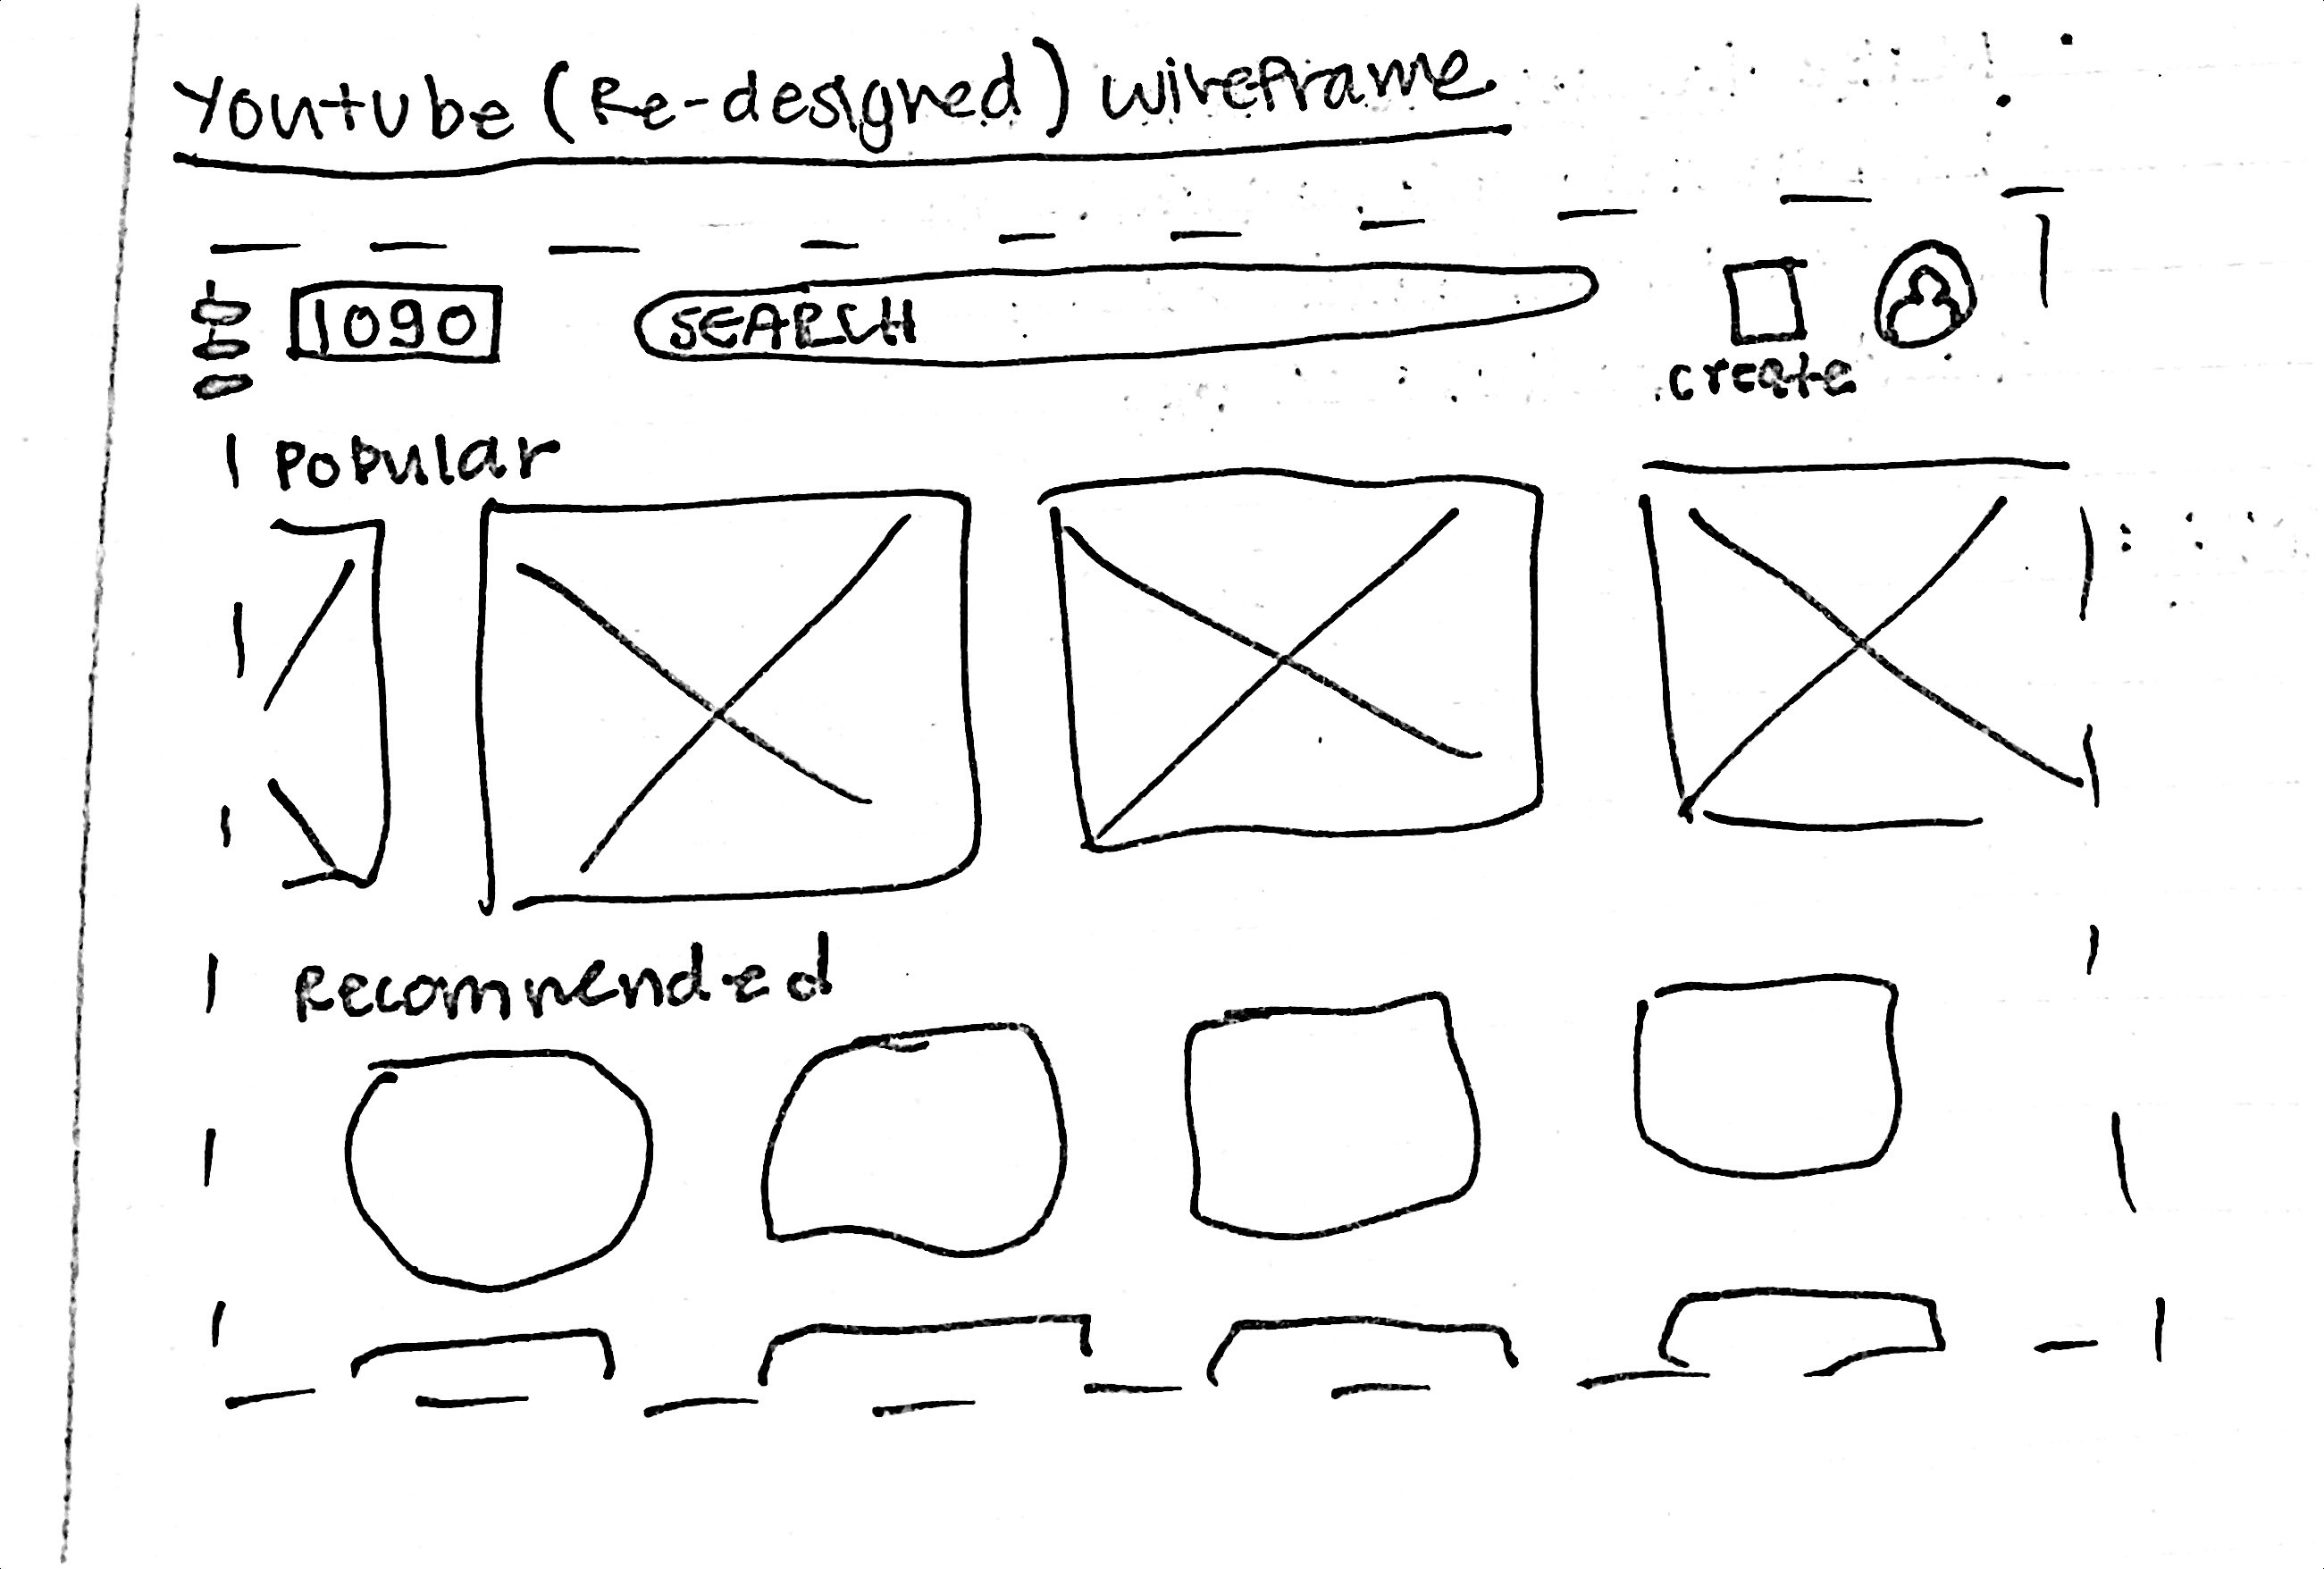 Youtube (Re-designed) wireframe
logo
SEARCH
create
Popular
Recommended